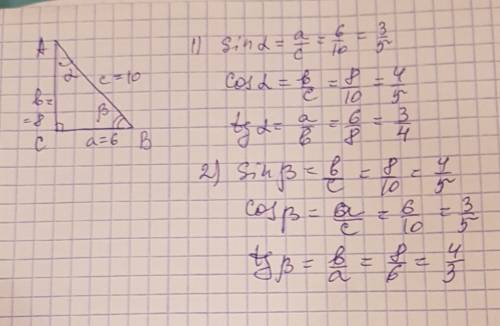 A
α
c = 10
b =
= 8
β
C
a = 6
B
1) sin α = a/c = 6/10 = 3/5
cos α = b/c = 8/10 = 4/5
tg α = a/b = 6/8 = 3/4
2) sin β = b/c = 8/10 = 4/5
cos β = a/c = 6/10 = 3/5
tg β = b/a = 8/6 = 4/3